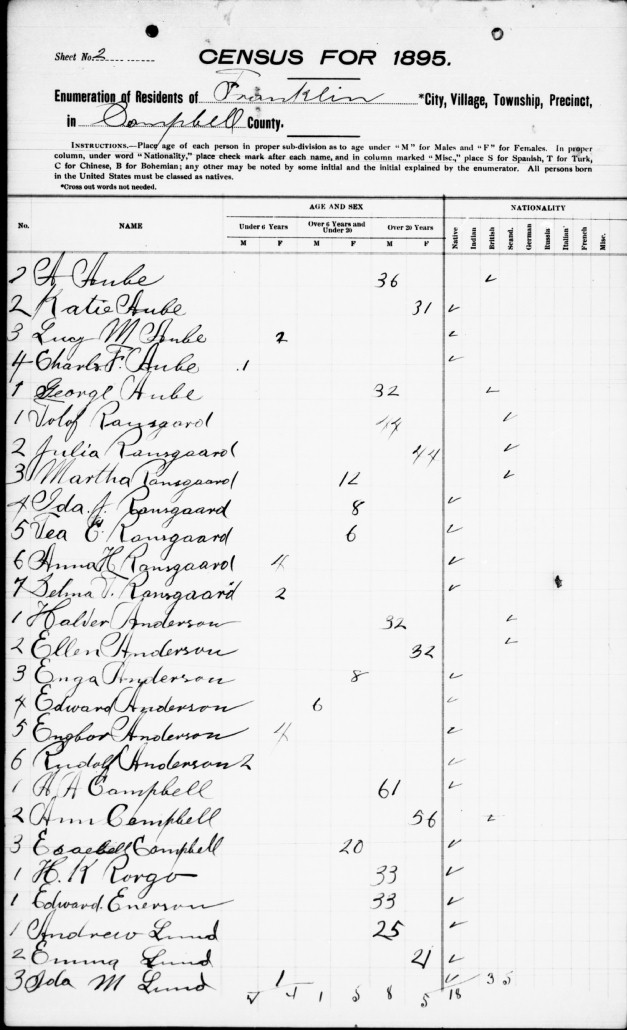 Sheet No. 2
CENSUS FOR 1895.
Enumeration of Residents of Franklin *City, Village, Township, Precinct,
in Campbell County.
INSTRUCTIONS.—Place age of each person in proper sub-division as to age under "M" for Males and "F" for Females. In proper
column, under word "Nationality," place check mark after each name, and in column marked "Misc.," place S for Spanish, T for Turk,
C for Chinese, B for Bohemian; any other may be noted by some initial and the initial explained by the enumerator. All persons born
in the United States must be classed as natives.
*Cross out words not needed.
AGE AND SEX NATIONALITY
No. NAME Under 6 Years Over 6 Years and Under 20 Over 20 Years Native Indian British Scand. German Russia Italian French Misc.
M F M F M F
2 A Aube 36 ✓
2 Katie Aube 31 ✓
3 Lucy M Aube 2 ✓
4 Charls F. Aube 1 ✓
1 George Aube 32 ✓
1 Tolof Ransgard 44 ✓
2 Julia Ransgaard 44 ✓
3 Martha Ransgaard 12 ✓
4 Ida J. Ransgaard 8 ✓
5 Tea E. Ransgaard 6 ✓
6 Anna H Ransgaard 4 ✓
7 Selma T. Ransgaard 2 ✓
1 Halver Anderson 32 ✓
2 Ellen Anderson 32 ✓
3 Enga Anderson 8 ✓
4 Edward Anderson 6 ✓
5 Engbor Anderson 4 ✓
6 Rudolf Anderson 2 ✓
1 A A Campbell 61 ✓
2 Ann Campbell 56 ✓
3 Esaebell Campbell 20 ✓
1 H. K Rorgo 33 ✓
1 Edward Enerson 33 ✓
1 Andrew Lund 25 ✓
2 Emma Lund 21 ✓
3 Ida M Lund 1 ✓
4 1 5 8 5 18 3 5